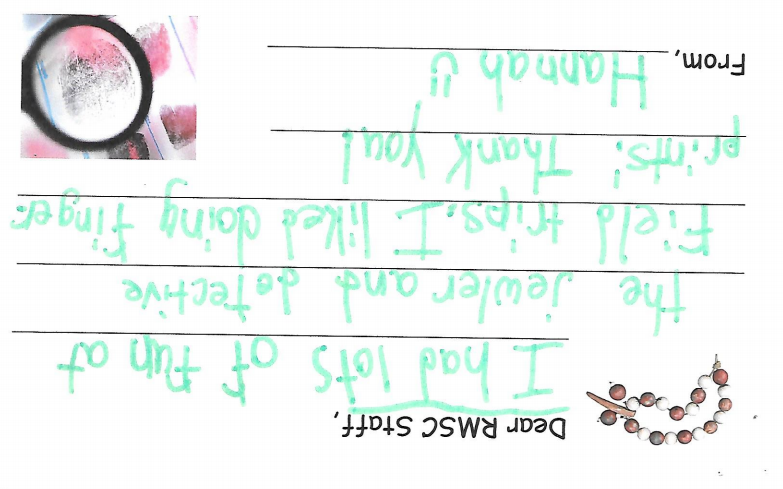 Dear RMSC Staff,
I had lots of fun at
the jewler and detective
field trips. I liked doing finger
prints. Thank you!
From, Hannah :)